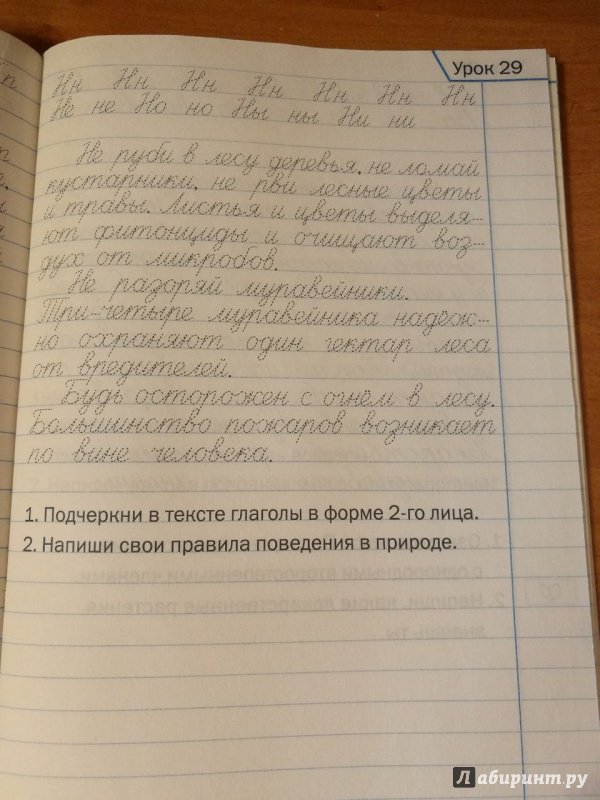 Урок 29
Нн Нн Нн Нн Нн Нн Нн
Не не Но но Ны ны Ни ни
Не руби в лесу деревья, не ломай
кустарники, не рви лесные цветы
и травы. Листья и цветы выделя-
ют фитонциды и очищают воз-
дух от микробов.
Не разоряй муравейники.
Три-четыре муравейника надёж-
но охраняют один гектар леса
от вредителей.
Будь осторожен с огнём в лесу.
Большинство пожаров возникает
по вине человека.
1. Подчеркни в тексте глаголы в форме 2-го лица.
2. Напиши свои правила поведения в природе.
Лабиринт.ру